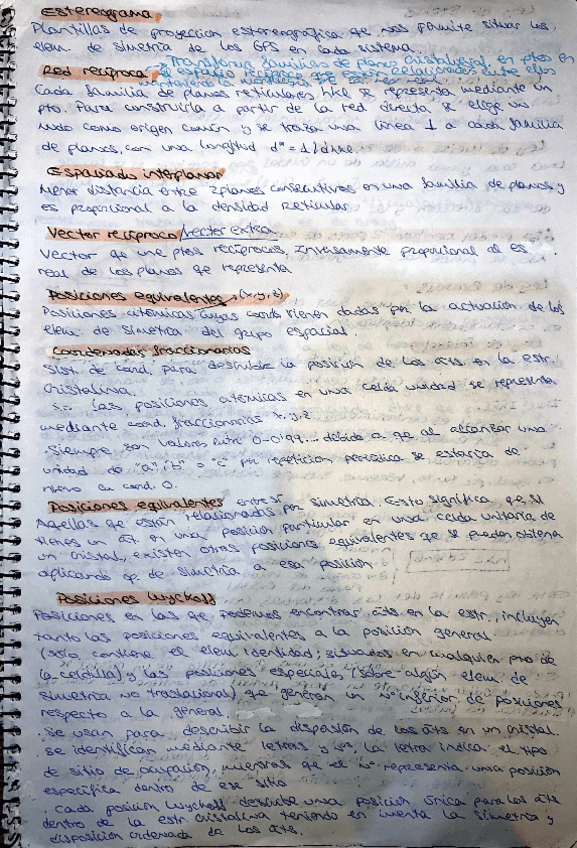 Estereograma
Plantillas de proyección estereográfica qe nos permite situar los
elem. de simetría de los GPS en cada sistema.
Red recíproca → Transforma familias de planos cristalográf. en ptos en
el espacio recíproco qe están relacionados entre ellos
Cada familia de planos reticulares hkl se representa mediante un
pto. Para construirla a partir de la red directa se elige un
nudo como origen común y se traza una línea ⊥ a cada familia
de planos, con una longitud d* = 1/dhkl.
Espaciado interplanar
Menor distancia entre 2 planos consecutivos en una familia de planos y
es proporcional a la densidad reticular
Vector recíproca/vector extra
Vector qe une ptos recíprocos, inversamente proporcional al es
real de los planos qe representa
Posiciones equivalentes, (x,y,z)
Posiciones atómicas cuyas coords vienen dadas por la actuación de los
elem. de simetría del grupo espacial.
Coordenadas fraccionarias
Sist. de coord. para describir la posición de los áts. en la estr.
cristalina.
Las posiciones atómicas en una celda unidad se representan
mediante coord. fraccionarias x,y,z
Siempre son valores entre 0-0'99... debido a qe al alcanzar una
unidad de "a", "b" o "c" por repetición periódica se estaría de
nuevo en coord. 0.
Posiciones equivalentes entre sí
Aquellas qe están relacionadas por simetría. Esto significa qe si
tienes un át. en una posición particular en una celda unitaria de
un cristal, existen otras posiciones equivalentes qe se pueden obtener
aplicando op de simetría a esa posición
Posiciones Wyckoff
Posiciones en las qe podemos encontrar áts. en la estr., incluyen
tanto las posiciones equivalentes a la posición general
(solo contiene el elem. identidad; situados en cualquier pto de
la celdilla) y las posiciones especiales (sobre algún elem. de
simetría no traslacional) qe generan un nº inferior de posiciones
respecto a la general.
. Se usan para describir la disposión de los áts en un cristal.
se identifican mediante letras y nos, la letra indica el tipo
de sitio de ocupación, mientras qe el nº representa una posición
específica dentro de ese sitio
. Cada posición Wyckoff describe una posición única para los áts.
dentro de la estr. cristalina teniendo en cuenta la simetría y
disposición ordenada de los áts.